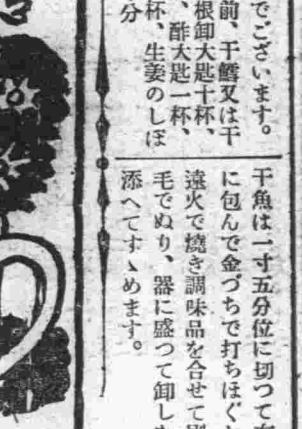 でございます。
前、干鱈又は干
根卸大匙十杯、
、酢大匙一杯、
杯、生姜のしぼ
分
干魚は一寸五分位に切つて
に包んで金づちで打ちほぐし
遠火で燒き調味品を合せて刷
毛でぬり、器に盛つて卸し
添へてすゝめます。